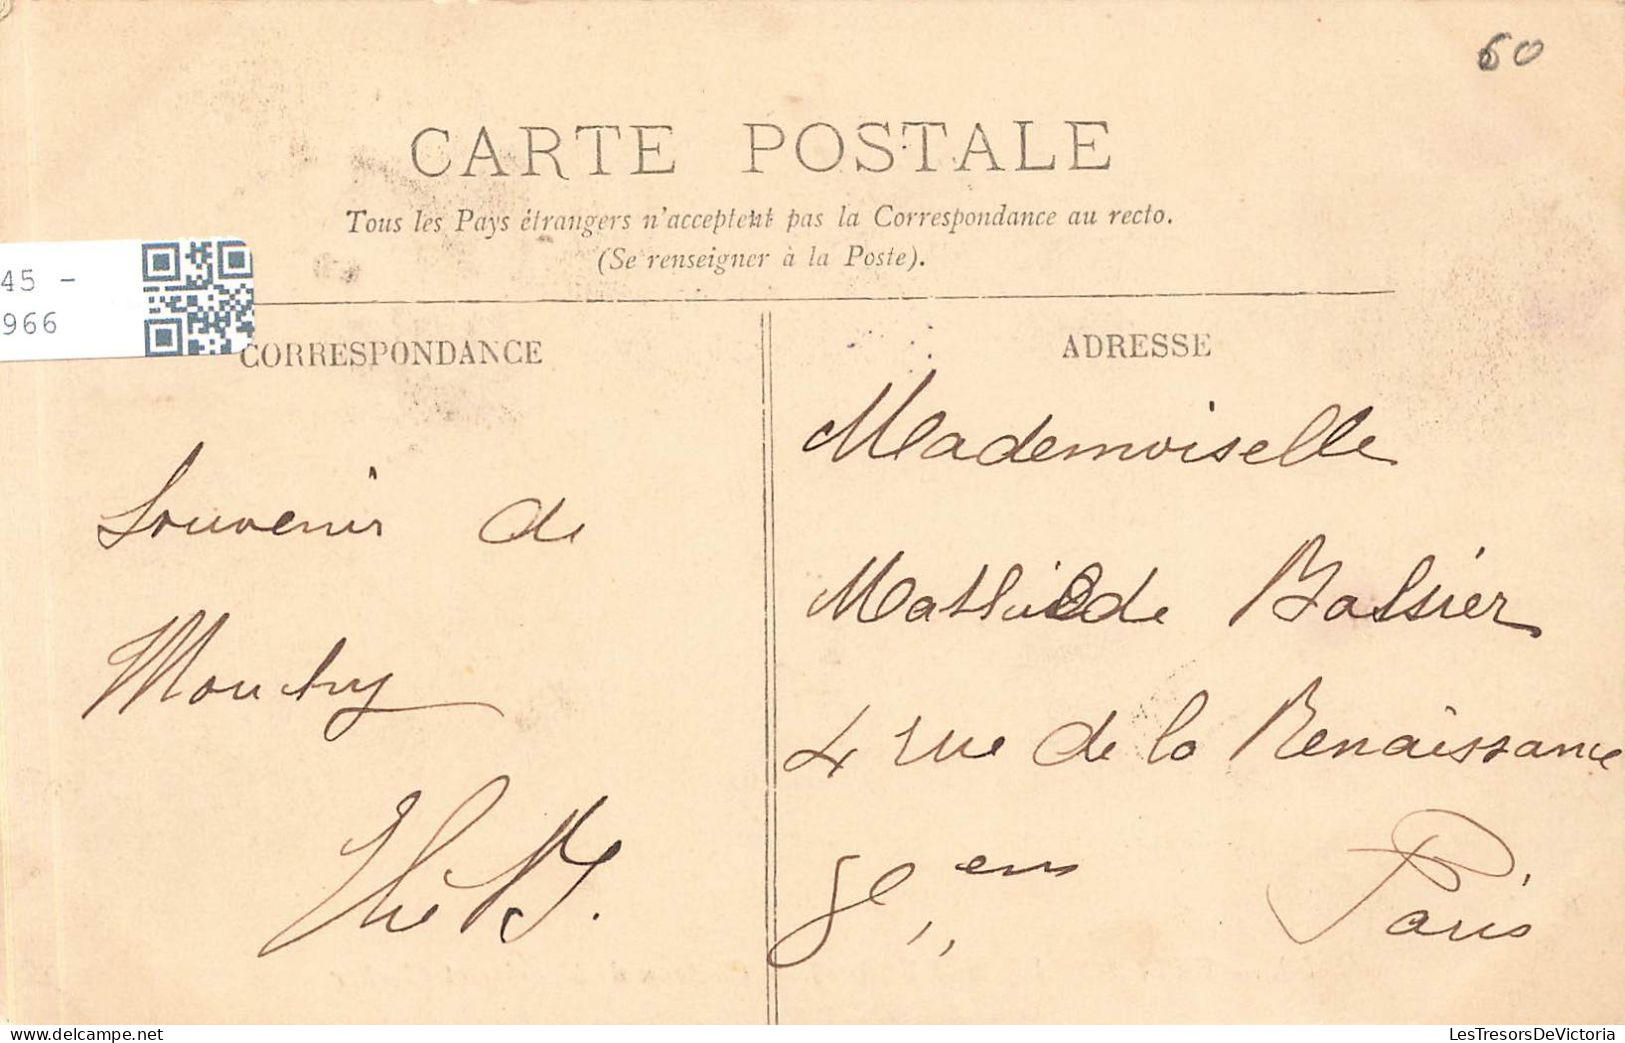 60
CARTE POSTALE
Tous les Pays étrangers n'acceptent pas la Correspondance au recto.
(Se renseigner à la Poste).
45 -
966
CORRESPONDANCE
ADRESSE
Souvenir de
Mouchy
Mademoiselle
Mathilde
4 rue de la Renaissance
8e,, Paris
LesTresorsDeVictoria.com